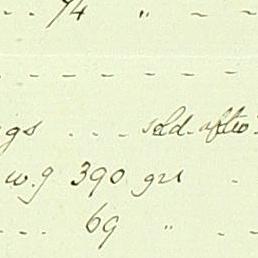 74 "
gs . . . . sold after
w.g 390 grs
69 "